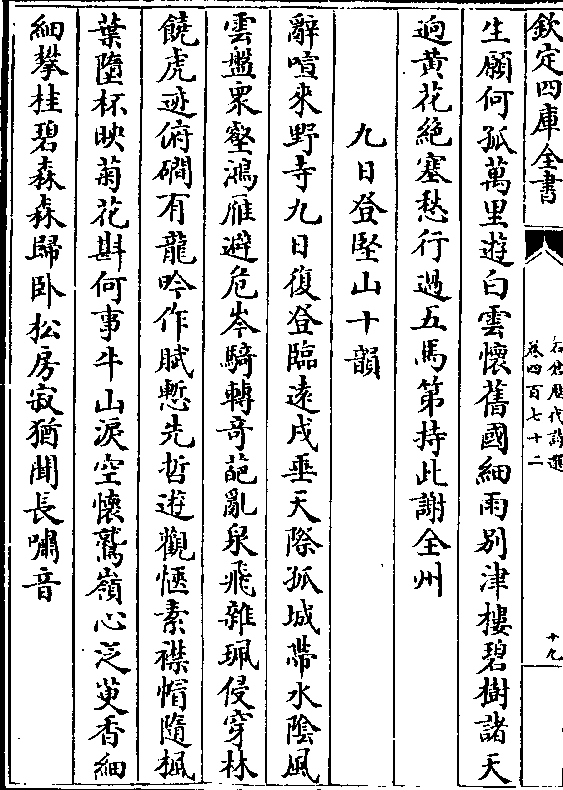 欽定四庫全書
石倉歷代詩選
卷四百七十二
十九
生願何孤萬里遊白雲懷舊國細雨別津樓碧樹諸天
逈黃花絕塞愁行過五馬第持此謝全州
九日登堅山十韻
辭喧來野寺九日復登臨遠戍垂天際孤城帶水陰風
雲盤衆壑鴻雁避危岑騎轉奇葩亂泉飛雜珮侵穿林
饒虎迹俯磵有龍吟作賦慙先哲遊觀愜素襟帽隨楓
葉墮杯映菊花斟何事牛山淚空懷鷲嶺心泛萸香細
細攀桂碧森森歸卧松房寂猶聞長嘯音